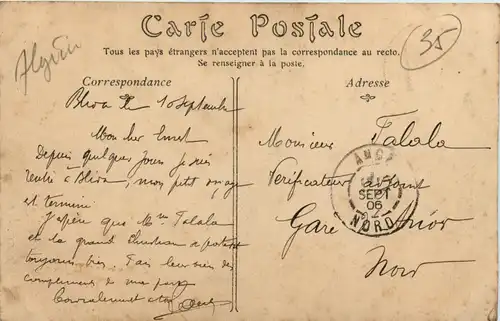 Carte Postale
Tous les pays étrangers n'acceptent pas la correspondance au recto.
Se renseigner à la poste.
35
Algérie
Correspondance
Adresse
Blida le 10 Septembre
Mon cher Ernest
Depuis quelques jours je suis
rentré à Blida, mon petit voyage
est terminé.
J'espère que Mme Talala
et la grande
toujours bien. Fais leur
compliments de ma part
Cordialement
Monsieur Talala
Vérificateur adjoint
Gare
Nord
ANO
SEPT
06
NORD